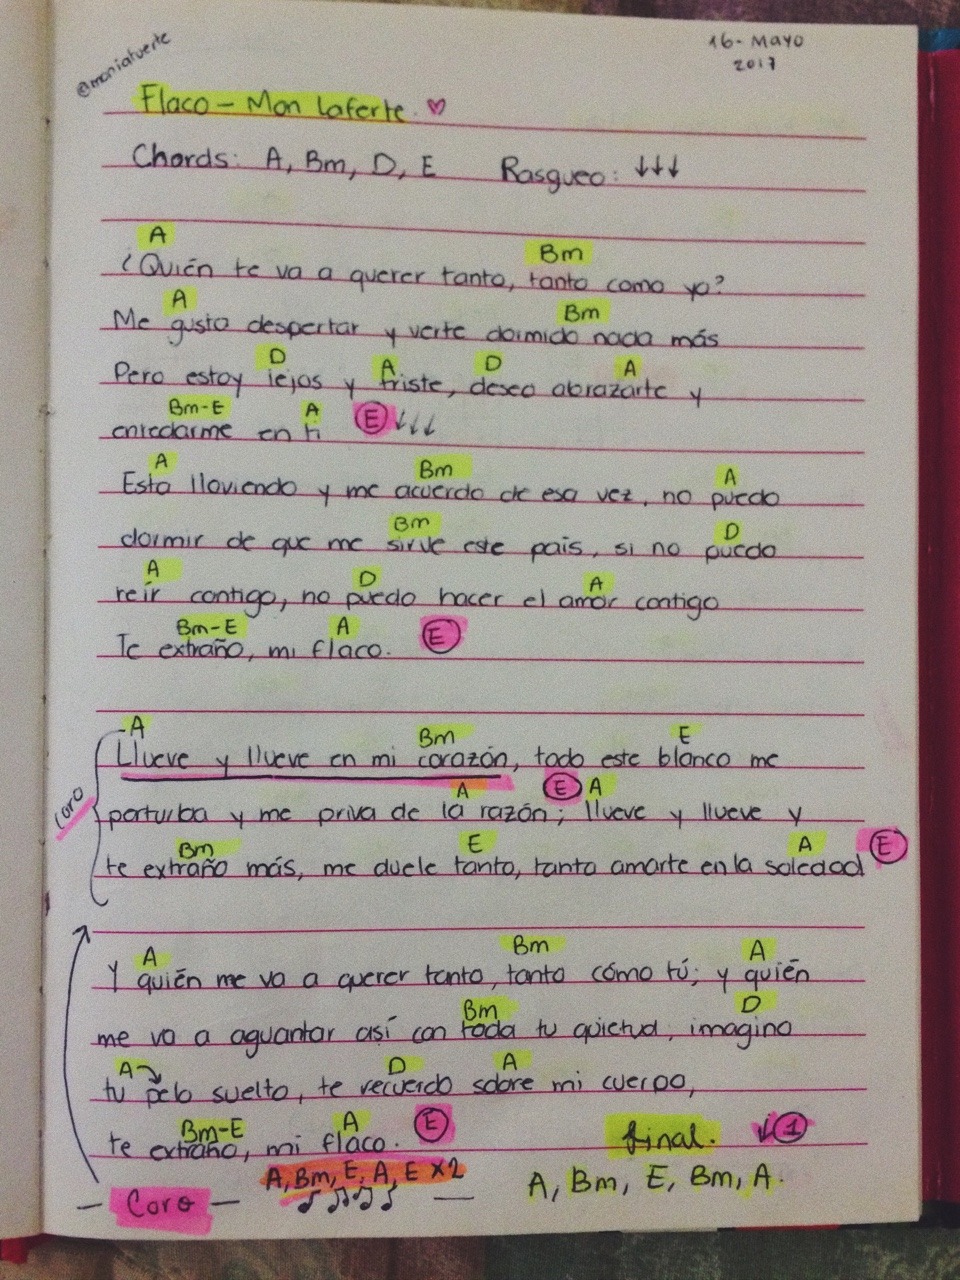 @moniafuerte
16-Mayo
2017
Flaco - Mon Laferte. ♥
Chords: A, Bm, D, E Rasgueo: ↓↓↓
A Bm
¿Quién te va a querer tanto, tanto como yo?
A Bm
Me gusta despertar y verte dormido nada más
D A D A
Pero estoy lejos y triste, deseo abrazarte y
Bm-E A E ↓↓↓
enredarme en ti
A Bm A
Esta lloviendo y me acuerdo de esa vez, no puedo
Bm D
dormir de que me sirve este país, si no puedo
A D A
reír contigo, no puedo hacer el amor contigo
Bm-E A E
Te extraño, mi flaco.
A Bm E
Llueve y llueve en mi corazón, todo este blanco me
Coro
A E A
perturba y me priva de la razón; llueve y llueve y
Bm E A E
te extraño más, me duele tanto, tanto amarte en la soledad
A Bm A
Y quién me va a querer tanto, tanto cómo tú; y quién
Bm D
me va a aguantar así con toda tu quietud, imagino
A D A
tu pelo suelto, te recuerdo sobre mi cuerpo,
Bm-E A E
te extraño, mi flaco.
final. ↓1
A, Bm, E, A, E x2
A, Bm, E, Bm, A.
— Coro —